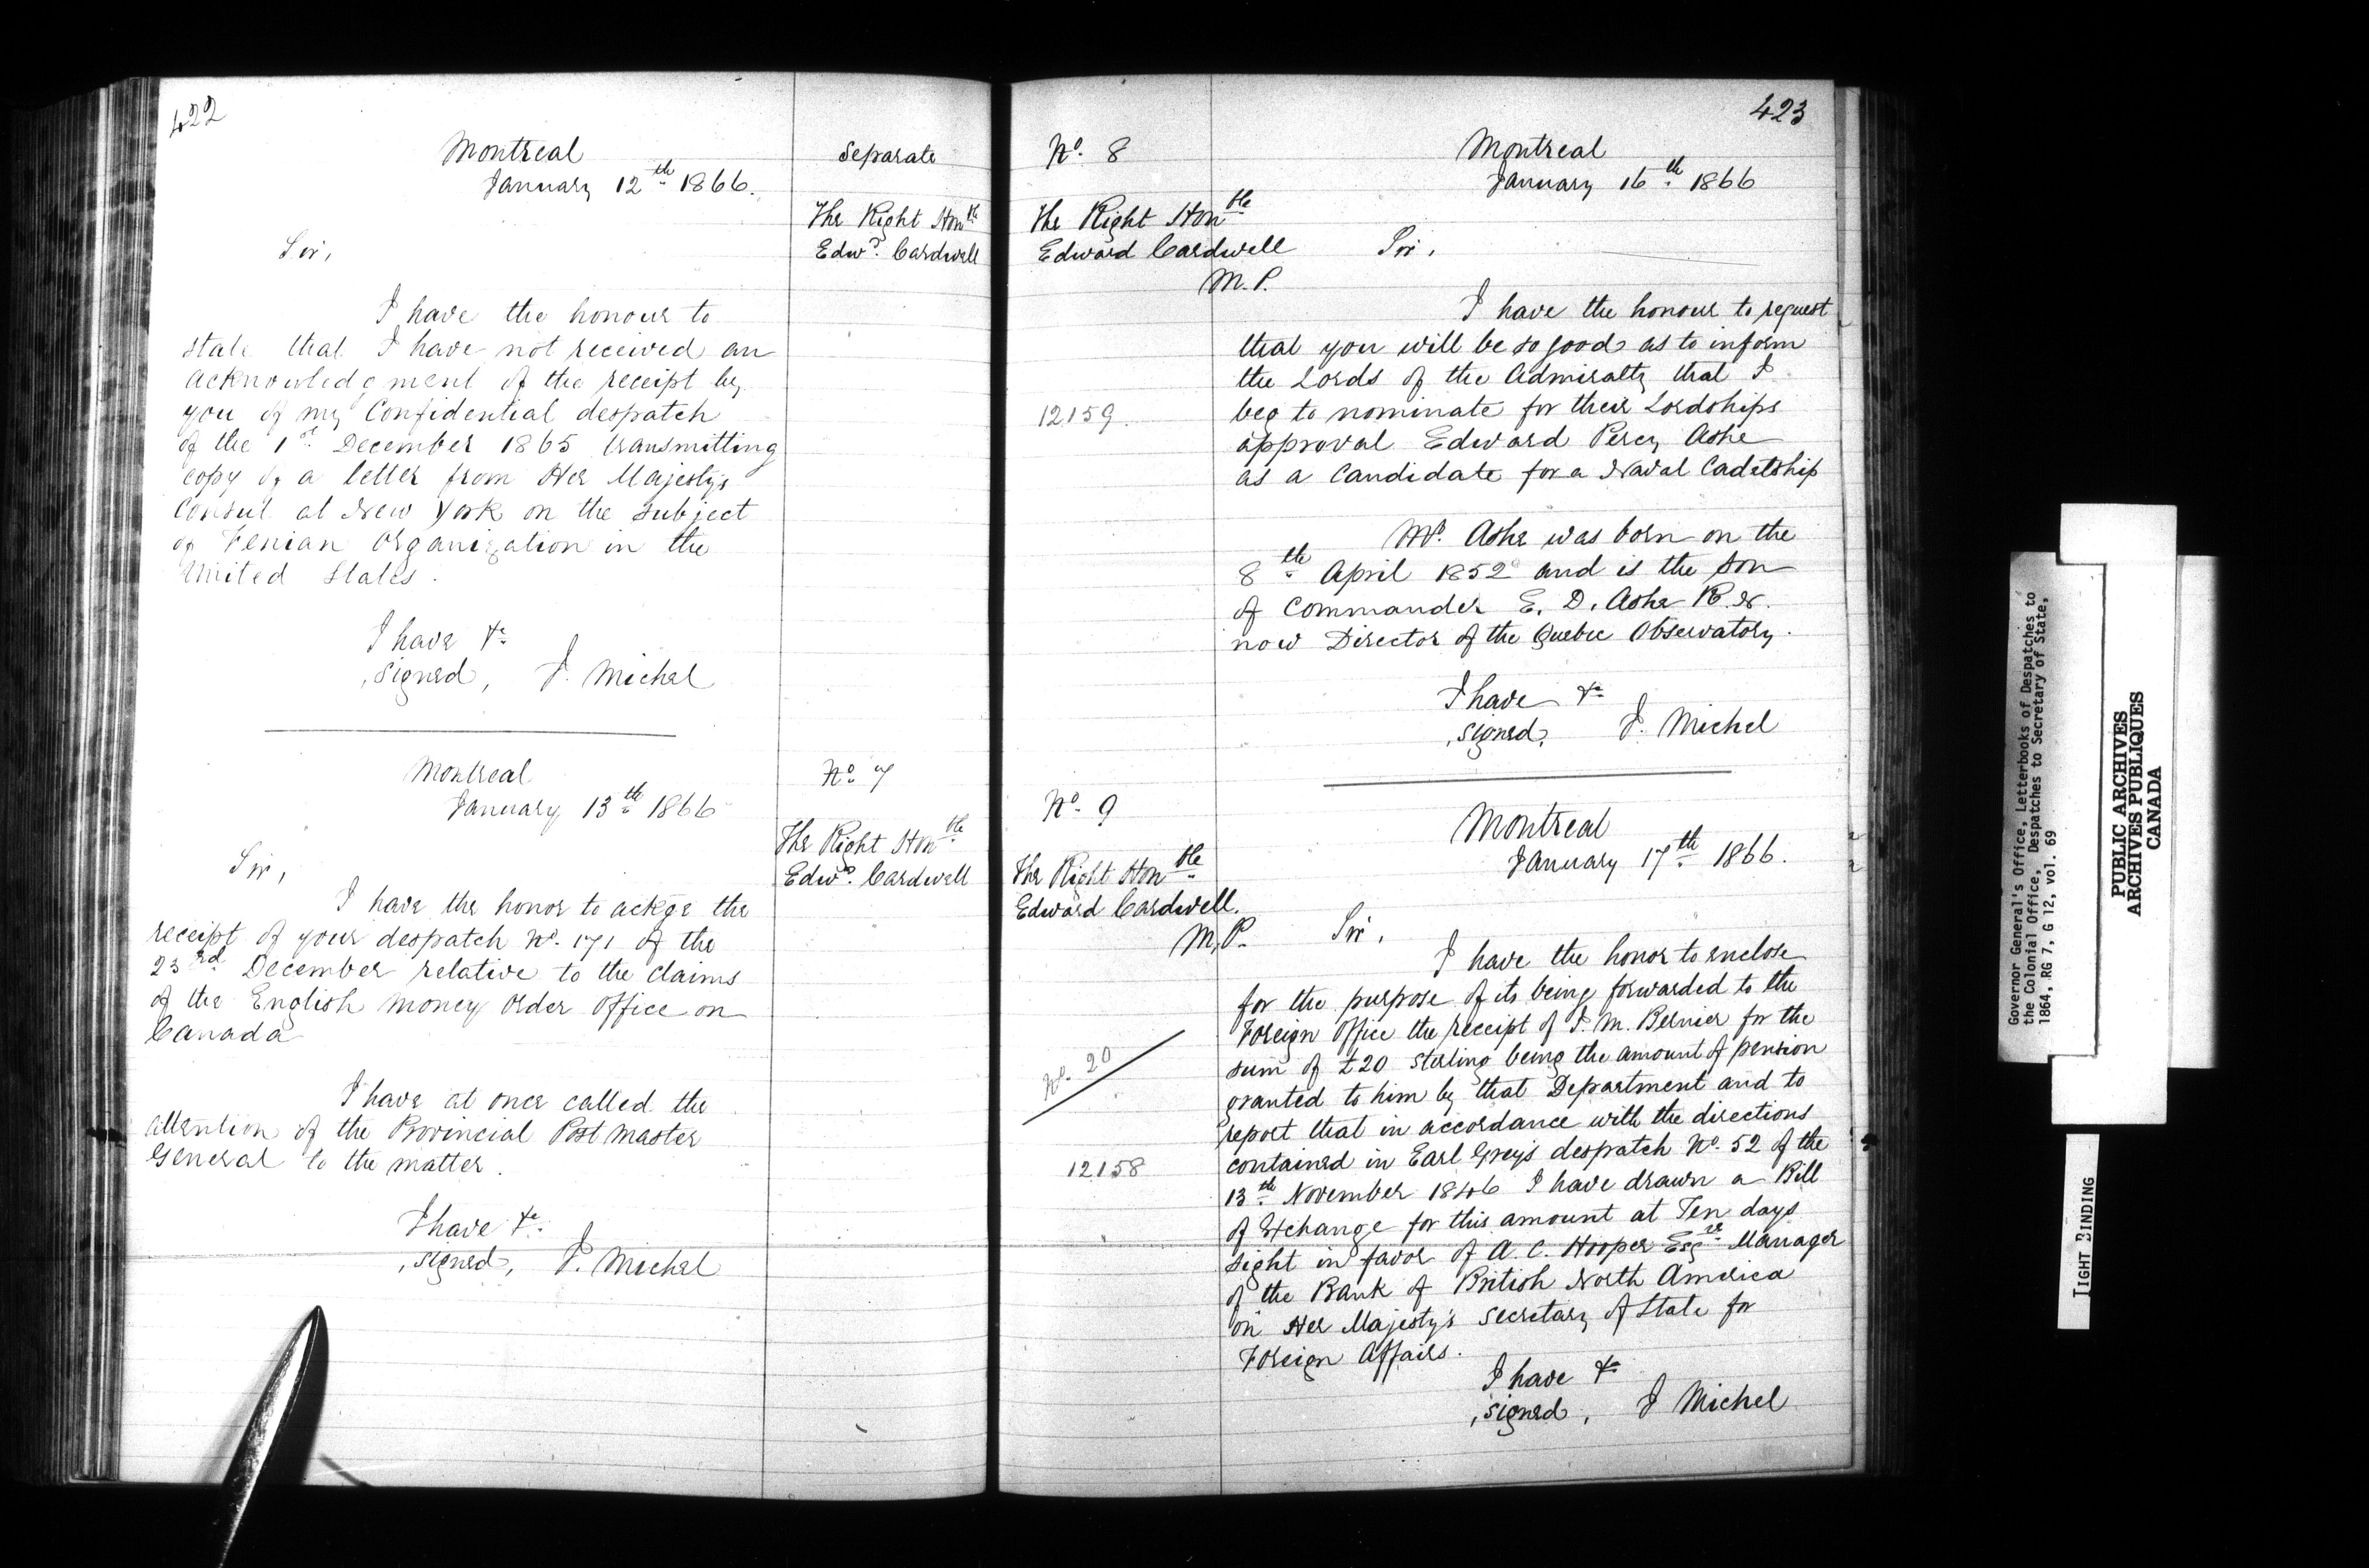 422
Montreal
January 12th 1866.
Separate
The Right Honble
Edwd. Cardwell
Sir,
I have the honour to
state that I have not received an
acknowledgment of the receipt by
you of my Confidential despatch
of the 1st December 1865 transmitting
copy of a letter from Her Majesty's
Consul at New York on the subject
of Fenian Organization in the
United States.
I have &c
signed, J. Michel
Montreal
January 13th 1866
No. 7
The Right Honble
Edwd. Cardwell
Sir,
I have the honor to ackge the
receipt of your despatch No. 171 of the
23rd December relative to the claims
of the English Money Order Office on
Canada
I have at once called the
attention of the Provincial Post Master
General to the matter.
I have &c.
signed, J. Michel
423
No. 8
Montreal
January 16th 1866
The Right Honble
Edward Cardwell
M.P.
Sir,
I have the honour to request
that you will be so good as to inform
the Lords of the Admiralty that I
beg to nominate for their Lordships
12159.
approval Edward Percy Ashe
as a Candidate for a Naval Cadetship
Mr. Ashe was born on the
8th April 1852 and is the son
of Commander E. D. Ashe R.N.
now Director of the Quebec Observatory.
I have &c
signed, J. Michel
No. 9
Montreal
January 17th 1866.
The Right Honble
Edward Cardwell.
M.P.
Sir,
I have the honor to enclose
for the purpose of its being forwarded to the
Foreign Office the receipt of J. M. Bernier for the
No. 20
sum of £20 sterling being the amount of pension
granted to him by that Department and to
report that in accordance with the directions
12158
contained in Earl Grey's despatch No. 52 of the
13th November 1846 I have drawn a Bill
of Exchange for this amount at Ten days
sight in favor of A. C. Hooper Esqre Manager
of the Bank of British North America
on Her Majesty's Secretary of State for
Foreign Affairs.
I have &c
signed, J Michel
Governor General's Office, Letterbooks of Despatches to
the Colonial Office, Despatches to Secretary of State,
1864, RG 7, G 12, vol. 69
PUBLIC ARCHIVES
ARCHIVES PUBLIQUES
CANADA
TIGHT BINDING